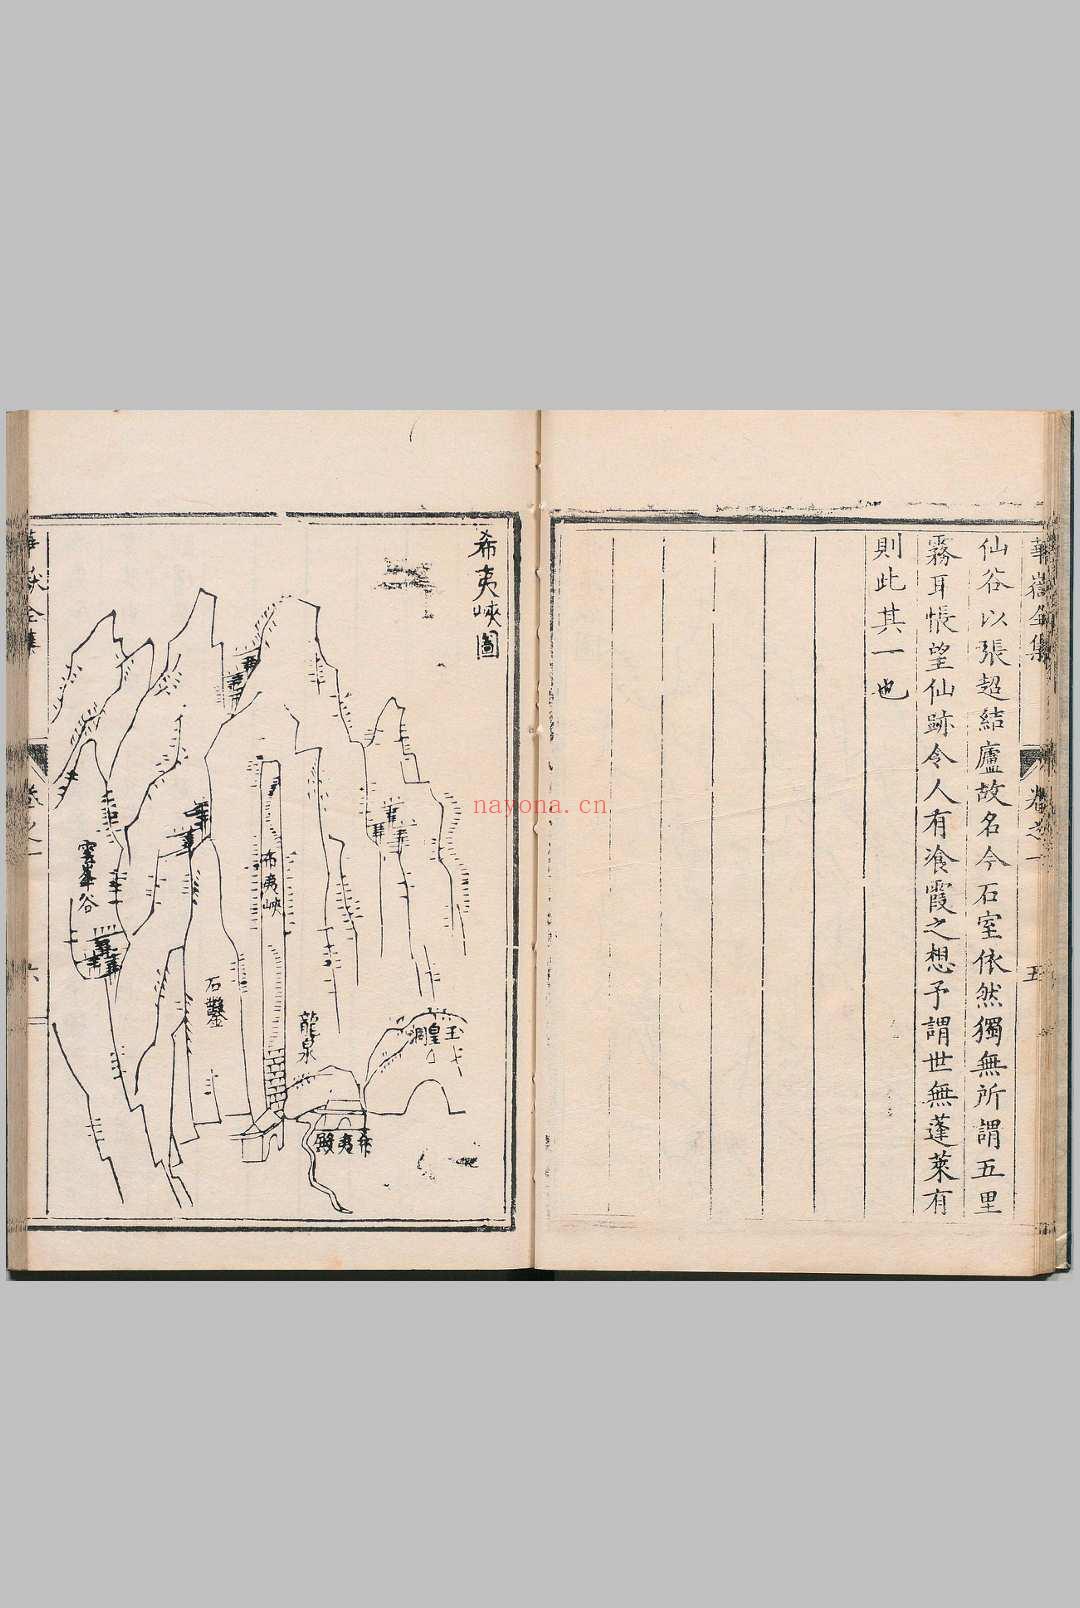 華嶽全集 卷之一 五
仙谷以張超結廬故名今石室依然獨無所謂五里
霧耳悵望仙跡令人有飡霞之想予謂世無蓬萊有
則此其一也
希夷峽圖
玉皇洞
希夷殿
龍泉
希夷峽
石鑿
雲峯谷
華嶽全集 卷之一 六
nayona.cn